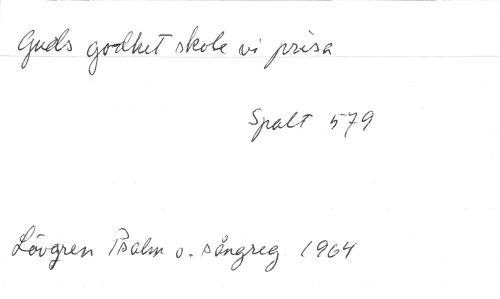 Guds godhet skole vi prisa
Spalt 579
Lövgren Psalm o. sångreg 1964